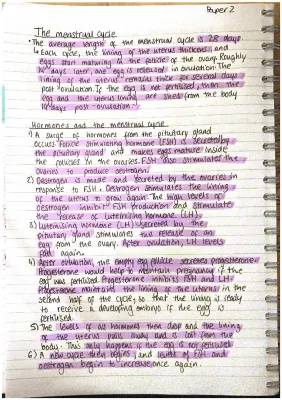 Paper 2
The menstrual cycle
• The average length of the menstrual cycle is 28 days.
↳ Each cycle, the lining of the uterus thickens, and
eggs start maturing in the follicle of the ovary. Roughly
14 days later one egg is released in ovulation. The
lining of the uterus remains thick for several days
post ovulation. If the egg is not fertilised, then the
egg and the uterus lining are shed from the body
days post ovulation.
Hormones and the menstrual cycle
1) A surge of hormones from the pituitary gland
occurs. Follicle stimulating hormone (FSH) is secreted by
the pituitary gland and makes eggs mature inside
the follicles in the ovaries. FSH also stimulates the
ovaries to produce oestrogen.
2) Oestrogen is made and secreted by the ovaries in
response to FSH. Oestrogen stimulates the lining
of the uterus to grow again. The high levels of
oestrogen inhibits FSH production and stimulate
the release of luteinising hormone (LH).
3) Luteinising hormone (LH) secreted by the
pituitary gland stimulates the release of an
egg from the ovary. After ovulation, LH levels
fall again.
4) After ovulation, the empty egg follicle secretes progesterone.
Progesterone would help to maintain pregnancy if the
egg was fertilised. Progesterone inhibits FSH and LH.
Progesterone maintains the lining of the uterus in the
second half of the cycle, so that the lining is ready
to receive a developing embryo if the egg is
fertilised.
5) The levels of all hormones then drop and the lining
of the uterus pulls away and is lost from the
body. This only happens if the egg is not fertilised.
6) A new cycle then begins, and levels of FSH and
oestrogen begin to increase once again.